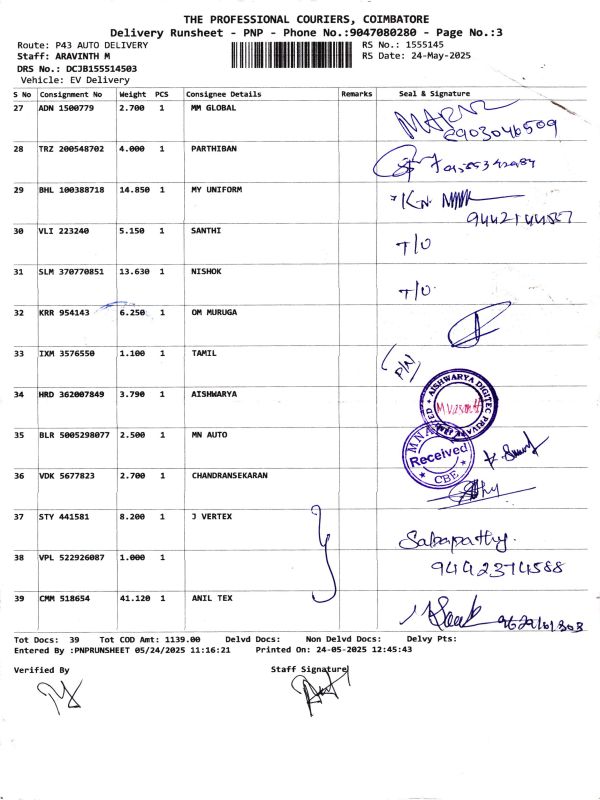 THE PROFESSIONAL COURIERS, COIMBATORE
Delivery Runsheet - PNP - Phone No.:9047080280 - Page No.:3
Route: P43 AUTO DELIVERY
Staff: ARAVINTH M
DRS No.: DCJB155514503
Vehicle: EV Delivery
RS No.: 1555145
RS Date: 24-May-2025
S No Consignment No Weight PCS Consignee Details Remarks Seal & Signature
27 ADN 1500779 2.700 1 MM GLOBAL
28 TRZ 200548702 4.000 1 PARTHIBAN
29 BHL 100388718 14.850 1 MY UNIFORM
30 VLI 223240 5.150 1 SANTHI T/O
31 SLM 370770851 13.630 1 NISHOK T/O
32 KRR 954143 6.250 1 OM MURUGA
33 IXM 3576550 1.100 1 TAMIL P/N
34 HRD 362007849 3.790 1 AISHWARYA
AISHWARYA DIGITEC
35 BLR 5005298077 2.500 1 MN AUTO
Received
CBE
36 VDK 5677823 2.700 1 CHANDRANSEKARAN
37 STY 441581 8.200 1 J VERTEX Sabapathy.
38 VPL 522926087 1.000 1 9442374588
39 CMM 518654 41.120 1 ANIL TEX
Tot Docs: 39 Tot COD Amt: 1139.00 Delvd Docs: Non Delvd Docs: Delvy Pts:
Entered By :PNPRUNSHEET 05/24/2025 11:16:21 Printed On: 24-05-2025 12:45:43
Verified By Staff Signature